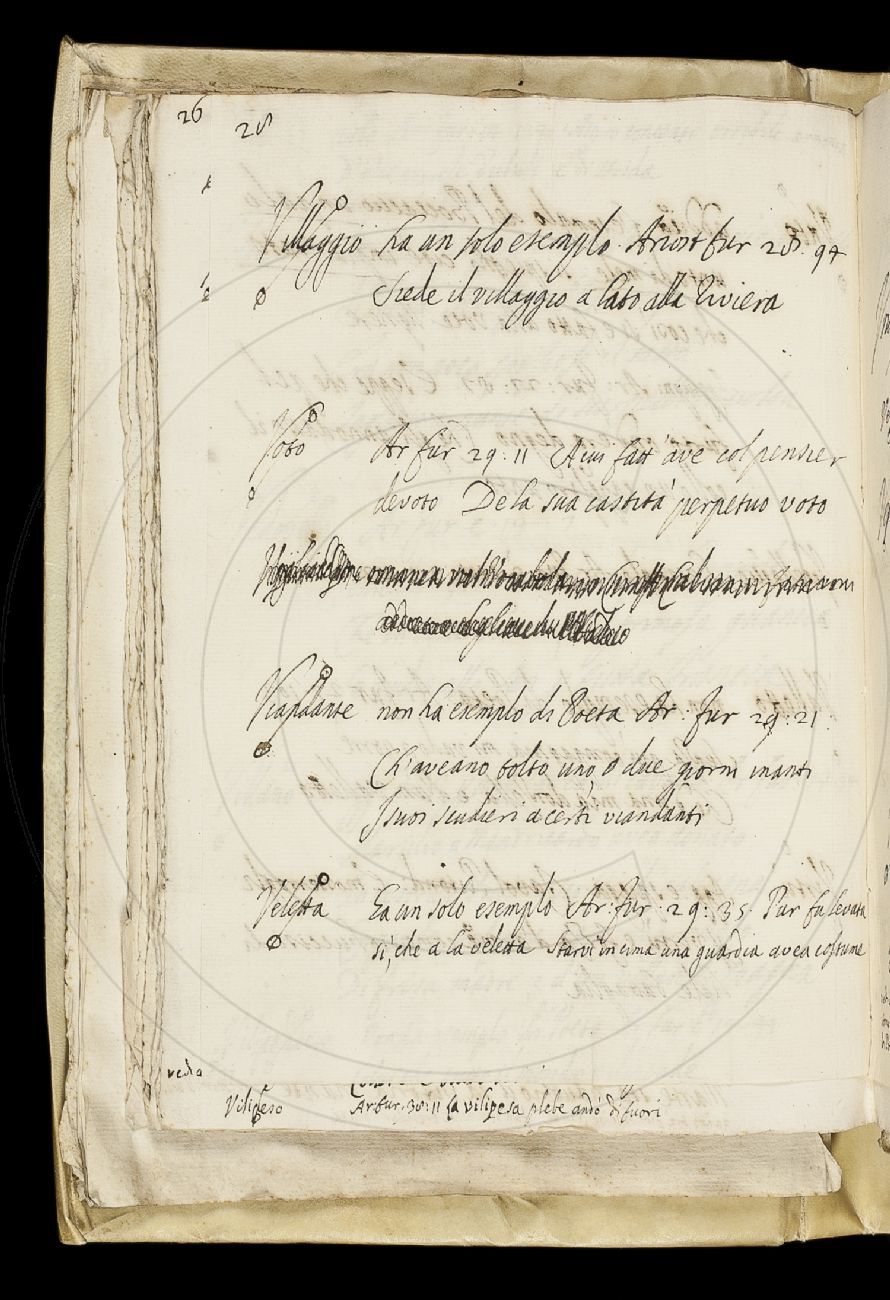 26
28
Villaggio ha un solo esempio. Ariost fur 28. 94
Siede il villaggio a lato alla Riviera
Voto Ar fur 29: 11 A cui fatt' ave col pensier
devoto De la sua castità perpetuo voto
Viandante non ha esempio di Poeta Ar: fur 29: 21
Ch'aveano tolto uno o due giorni inanti
I suoi scudieri a certi viandanti
Veletta Ha un solo esempio Ar: fur: 29: 35 Pur fu levata
sì, che a la veletta Starvi in cima una guardia avea costume
vedia
Vilipeso Ar fur. 38: 11 la vilipesa plebe andò di fuori